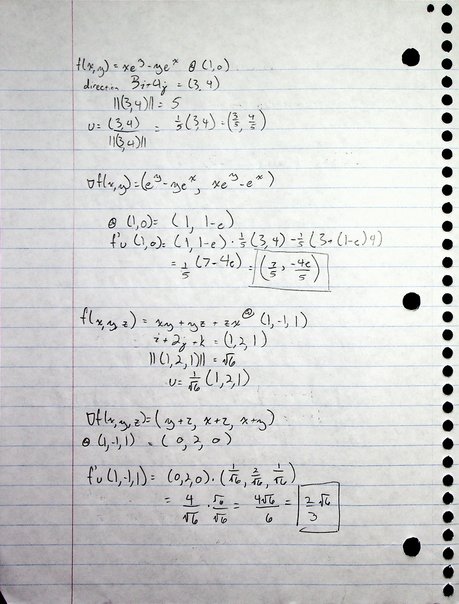 f(x,y) = xe^y - ye^x @ (1,0)
direction 3i+4j = (3,4)
||(3,4)|| = 5
u = (3,4)/||(3,4)|| = 1/5 (3,4) = (3/5, 4/5)
∇f(x,y) = (e^y - ye^x, xe^y - e^x)
@ (1,0) = (1, 1-e)
f'u (1,0) = (1, 1-e) · 1/5 (3,4) = 1/5 (3+(1-e)4)
= 1/5 (7-4e) = (7/5, -4e/5)
f(x,y,z) = xy + yz + zx @ (1,-1,1)
i + 2j + k = (1,2,1)
||(1,2,1)|| = √6
u = 1/√6 (1,2,1)
∇f(x,y,z) = (y+z, x+z, x+y)
@ (1,-1,1) = (0,2,0)
f'u (1,-1,1) = (0,2,0) · (1/√6, 2/√6, 1/√6)
= 4/√6 · √6/√6 = 4√6/6 = 2/3 √6